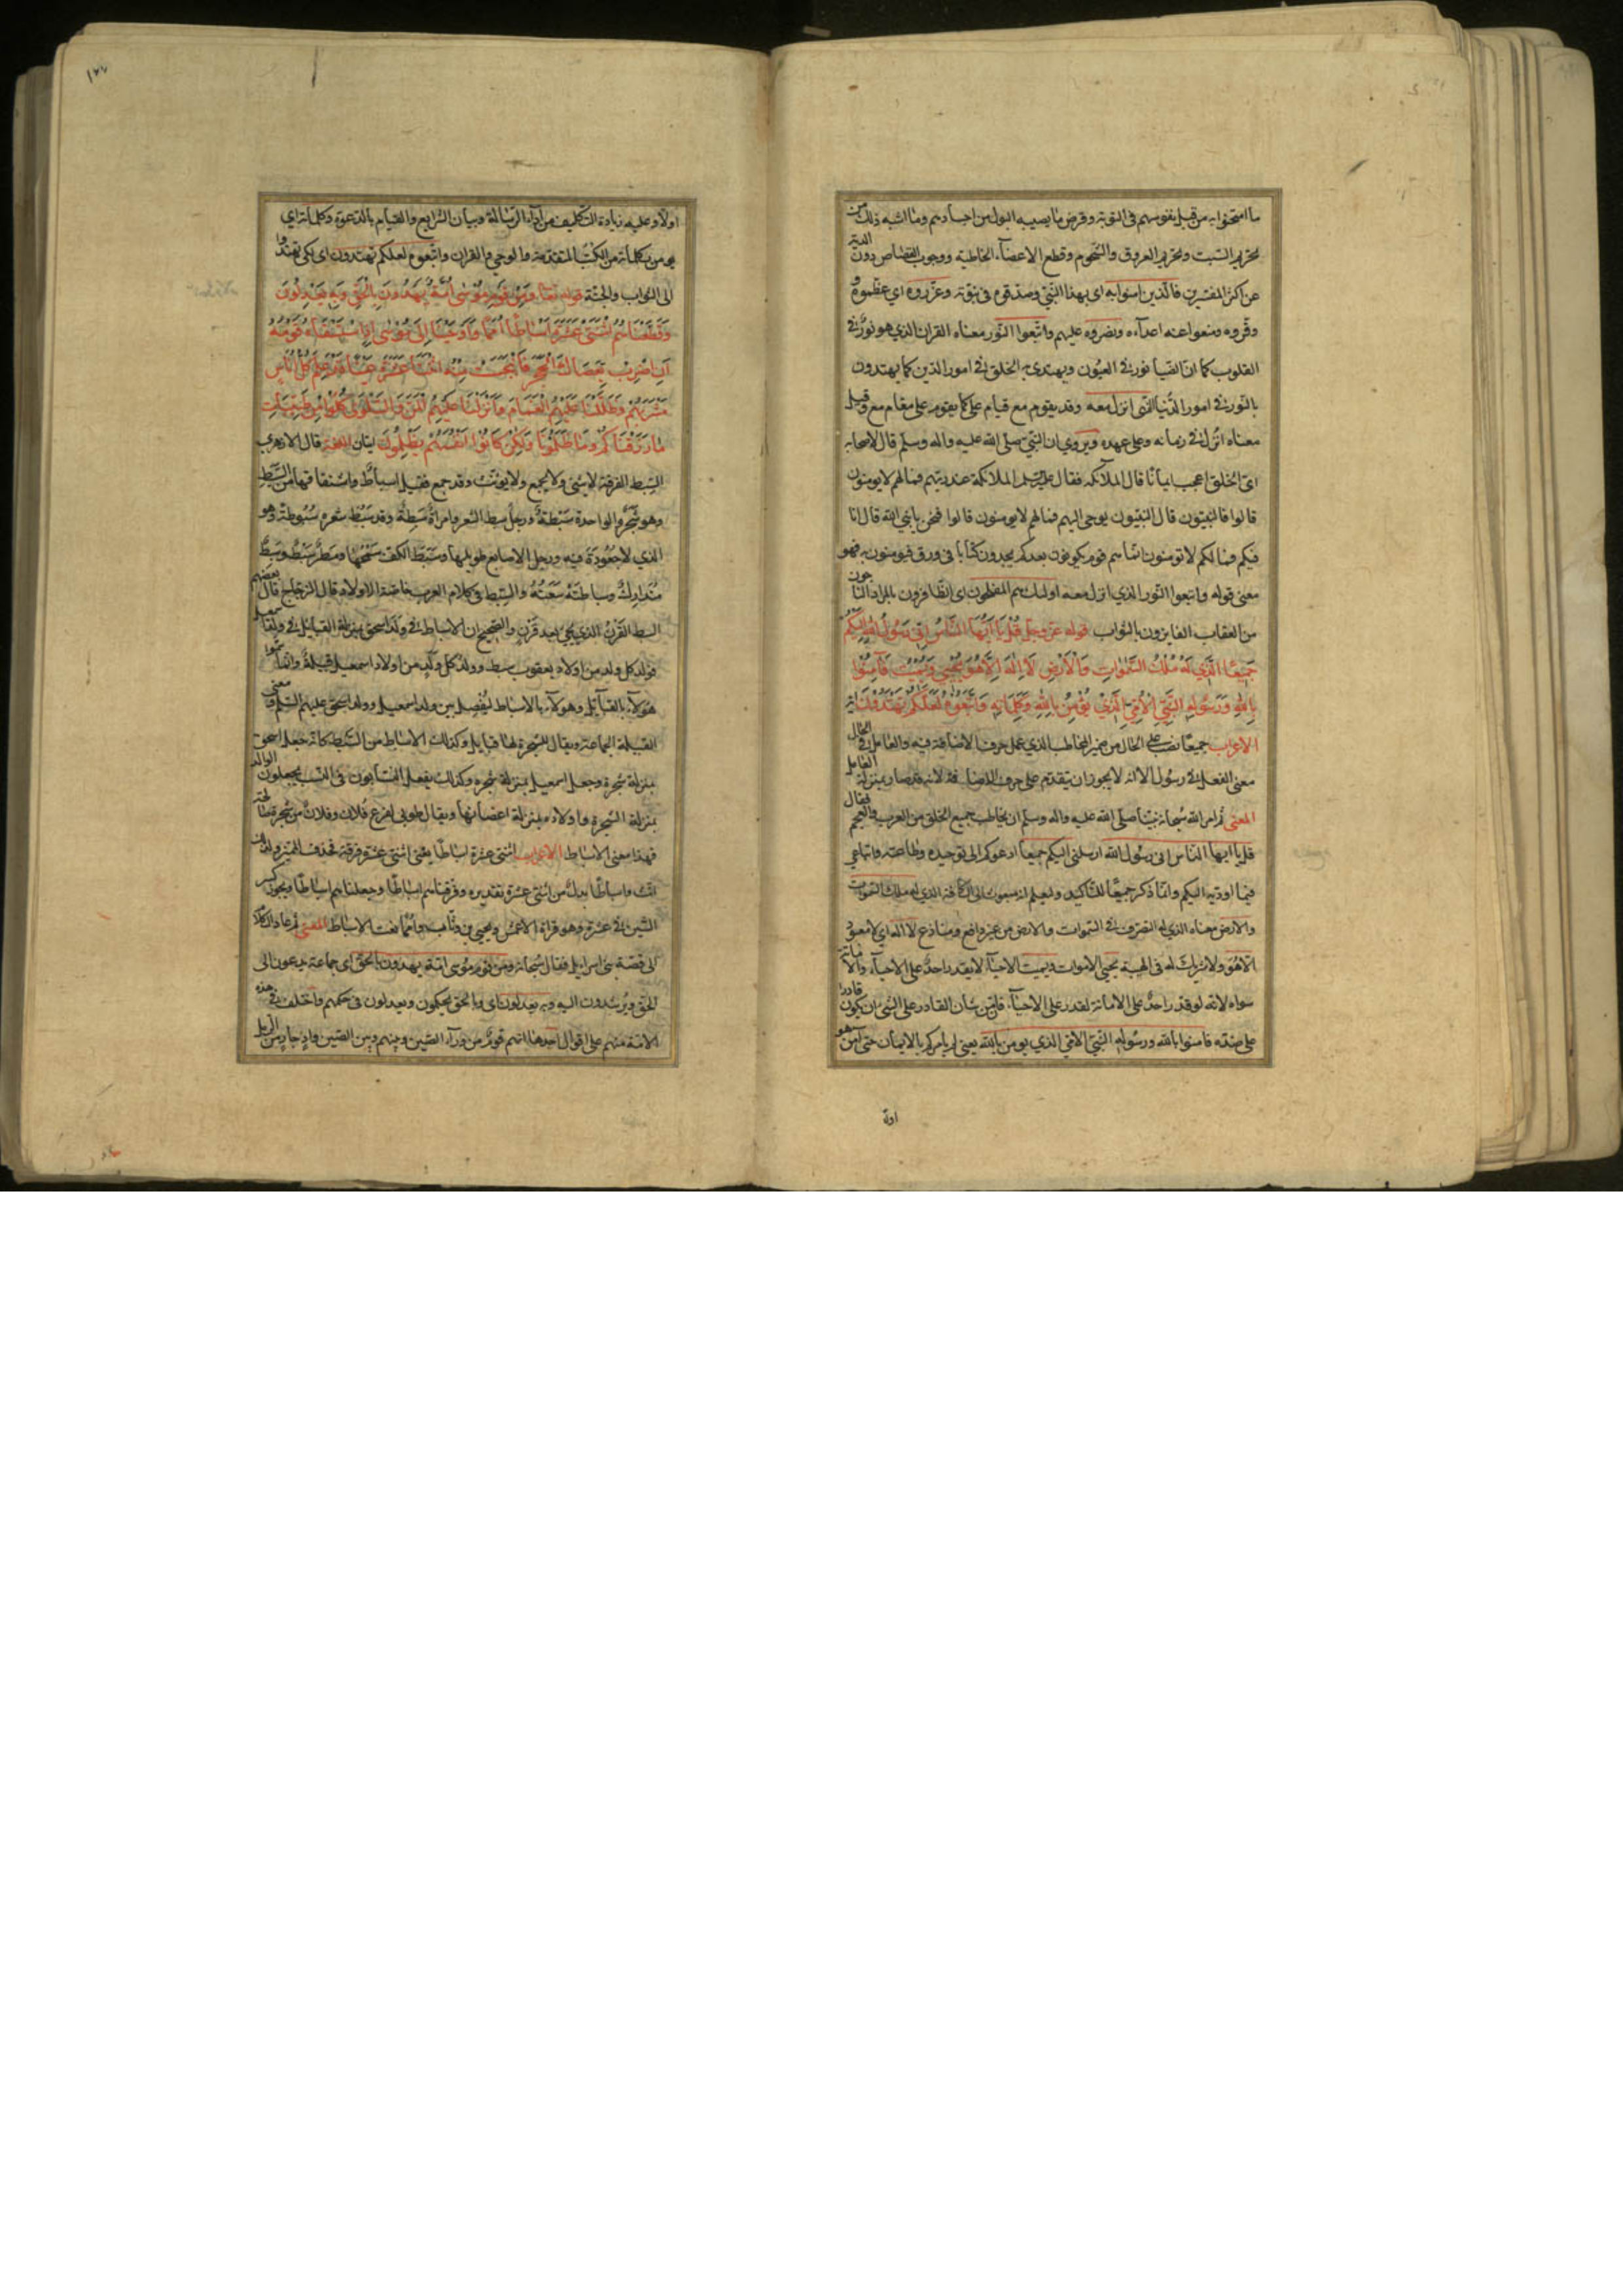 ما امتحنوا به من قبل نفوسهم فی التوبة وقرض ما یصیبه البول من اجسادهم وما اشبه ذلك من
تحریم السبت وتحریم العروق والشحوم وقطع الاعضآء الخاطیة ووجوب القصاص دون الدیة
عن اکثر المفسرین فالّذین امنوا به ای بهذا النبیّ وصدقوه فی نبوّته وعزّروه ای عظموه و
وقّروه ومنعوا عنه اعدآءه ونصروه علیهم واتبعوا النّور معناه القران الذی هو نورٌ فی
القلوب کما انّ الضیآ نور فی العیون ویهتدی به الخلق فی امور الدّین کما یهتدون
بالنّور فی امور الدّنیا الذی انزل معه وقد یقوم مع قیام علی کما یقوم علی مقام مع وقیل
معناه انزل فی زمانه وعلی عهده ویروی ان النبیّ صلی الله علیه واله وسلم قال لاصحابه
ایّ الخلق اعجب ایمانًا قال الملائکة فقال الملائکة عند ربّهم فمالهم لا یومنون
قالوا فالنبیّون قال النبیّون یوحی الیهم فمالهم لا یومنون قالوا فنحن یا نبی الله قال انا
فیکم فمالکم لا تومنون انّما هم قوم یکونون بعدکم یجدون کتابًا فی ورق فیومنون به فهو
معنی قوله واتبعوا النّور الذی انزل معه اولئك هم المفلحون ای الظافرون بالمراد الناجون
من العقاب الفایزون بالثواب قوله عزّ وجل قُلْ یَا اَیُّهَا النَّاسُ اِنّی رَسُولُ اللهِ اِلَیْکُمْ
جَمِیعًا الَّذِی لَهُ مُلْكُ السَّمٰوَاتِ وَالْاَرْضِ لَا اِلٰهَ اِلَّا هُوَ یُحْیِی وَیُمِیتُ فَآمِنُوا
بِاللهِ وَرَسُولِهِ النَّبِیِّ الْاُمِّیِّ الَّذِی یُؤْمِنُ بِاللهِ وَکَلِمَاتِهِ وَاتَّبِعُوهُ لَعَلَّکُمْ تَهْتَدُونَ ایة
الاعراب جمیعًا نصب علی الحال من ضمیر المخاطب الذی عمل حرف الاضافة فیه والعامل فی الحال
معنی الفعل فی رسول الّا انه لا یجوز ان یتقدم علی حرف الاضافة لانه قد صار بمنزلة العامل
المعنی ثم امر الله سُبحانه نبیّنا صلّی الله علیه واله وسلم ان یخاطب جمیع الخلق من العرب والعجم فقال
قل یا ایها النّاس انی رسُول الله ارسلنی الیکم جمیعًا ادعوکم الی توحیده وطاعته واتباعی
فیما اودیه الیکم وانّما ذکر جمیعًا للتّاکید ولیعلم انه مبعوث الی الکافة الذی له ملك السّموات
والارض معناه الذی له التصرّف فی السّموات والارض من غیر دافع ومنازع لا اله ای لا معبود
الّا هُو ولا شریك له فی الهیّته یحیی الاموات ویمیت الاحیآء لا یقدر احدٌ علی الاحیآء والاماتة
سواه لانّه لو قدر احدٌ علی الاماتة لقدر علی الاحیآء فانّ من شان القادر علی الشیٔ ان یکون قادرا
علی ضدّه فامنوا بالله ورسُوله النّبیّ الامّی الذی یومن بالله یعنی لم یامرکم بالایمان حتی آمن هو
اولا
١٧٧
اولًا وعلیه زیادة التکلیف من ادآء الرّسالة وبیان الشرایع والقیام بالدّعوة وکلماته ای
یومن بکلماته من الکتب المتقدّمة والوحی والقران واتّبعوه لعلکم تهتدون ای لکی تهتدوا
الی الثواب والجنّة قوله تعالی وَمِنْ قَوْمِ مُوسٰی اُمَّةٌ یَهْدُونَ بِالْحَقِّ وَبِهِ یَعْدِلُونَ
وَقَطَّعْنَاهُمُ اثْنَتَیْ عَشْرَةَ اَسْبَاطًا اُمَمًا وَاَوْحَیْنَا اِلٰی مُوسٰی اِذِ اسْتَسْقٰیهُ قَوْمُهُ
اَنِ اضْرِبْ بِعَصَاكَ الْحَجَرَ فَانْبَجَسَتْ مِنْهُ اثْنَتَا عَشْرَةَ عَیْنًا قَدْ عَلِمَ کُلُّ اُنَاسٍ
مَشْرَبَهُمْ وَظَلَّلْنَا عَلَیْهِمُ الْغَمَامَ وَاَنْزَلْنَا عَلَیْهِمُ الْمَنَّ وَالسَّلْوٰی کُلُوا مِنْ طَیِّبَاتِ
مَا رَزَقْنَاکُمْ وَمَا ظَلَمُونَا وَلٰکِنْ کَانُوا اَنْفُسَهُمْ یَظْلِمُونَ ایتان اللغة قال الازهری
السِّبط الفرقة لا یثنی ولا یجمع ولا یونّث وقد جمع فقیل اسباطٌ واشتقاقها من السَّبَط
وهو شجرٌ والواحدة سَبَطةٌ ورجلٌ سبط الشعر وامراةٌ سَبِطةٌ وقد سَبُطَ شعره سُبُوطَة وهو
الذی لا جُعُودَةَ فیه ورجل الاصابع طویلها وسَبْط الکفّ سَمْحُها ومطرٌ سَبْطٌ وسَبِطٌ
مُتَدارِكٌ وسباطته سَعَتُه والسِّبط فی کلام العرب خاصّة الاولاد قال الزجّاج قال بعضهم
السبط القَرْنُ الذی یجیٔ بعد قَرْنٍ والصّحیح ان الاسباط فی ولد اسحق بمنزلة القبایل فی ولد اسمعیل
فولد کل ولد من اولاد یعقوب سبط وولد کل ولدٍ من اولاد اسمعیل قبیلةٌ وانّما سمّوا
هؤلآء بالقبآئل وهولآء بالاسباط لیُفصل بین ولد اسمعیل وولد اسحق علیهم السّلم ومعنی
القبیلة الجماعة ویقال للشجرة لها قبایل وکذلك الاسباط من السَّبَط کانّه جعل اسحق
بمنزلة شجرة وجعل اسمعیل بمنزلة شجره وکذلك یفعل النسّابون فی النّسب یجعلون الوالد
بمنزلة الشجرة واولاده بمنزلة اغصانها ویقال طوبی لفرع فلان وفلانٌ من شجرة صالحة
فهذا معنی الاسباط الاعراب اثنتی عشرة اسباطًا یعنی اثنتی عشرة فرقة فحذف المُمَیّز ولذلك
انّث واسباطًا بدلٌ من اثنتی عشرة تقدیره وفرّقناهم اسباطًا وجعلناهم اسباطًا ویجوز کسر
الشّین فی عشرة وهو قراة الاعمش ویحیی بن وثّاب واُممًا نعت الاسباط المعنی ثم عاد الکلام
الی قصّة بنی اسرایل فقال سُبحانه ومن قوم مُوسی امّة یهدون بالحقّ ای جماعة یدعون الی
الحقّ ویُرشدون الیه وبه یعدلون ای وبالحقّ یحکمون ویعدلون فی حکمهم واختلف فی هذه
الامّة منهم علی اقوال احدها انّهم قومٌ من ورآء الصّین وبینهم وبین الصّین وادٍ جارٍ من الرّمل